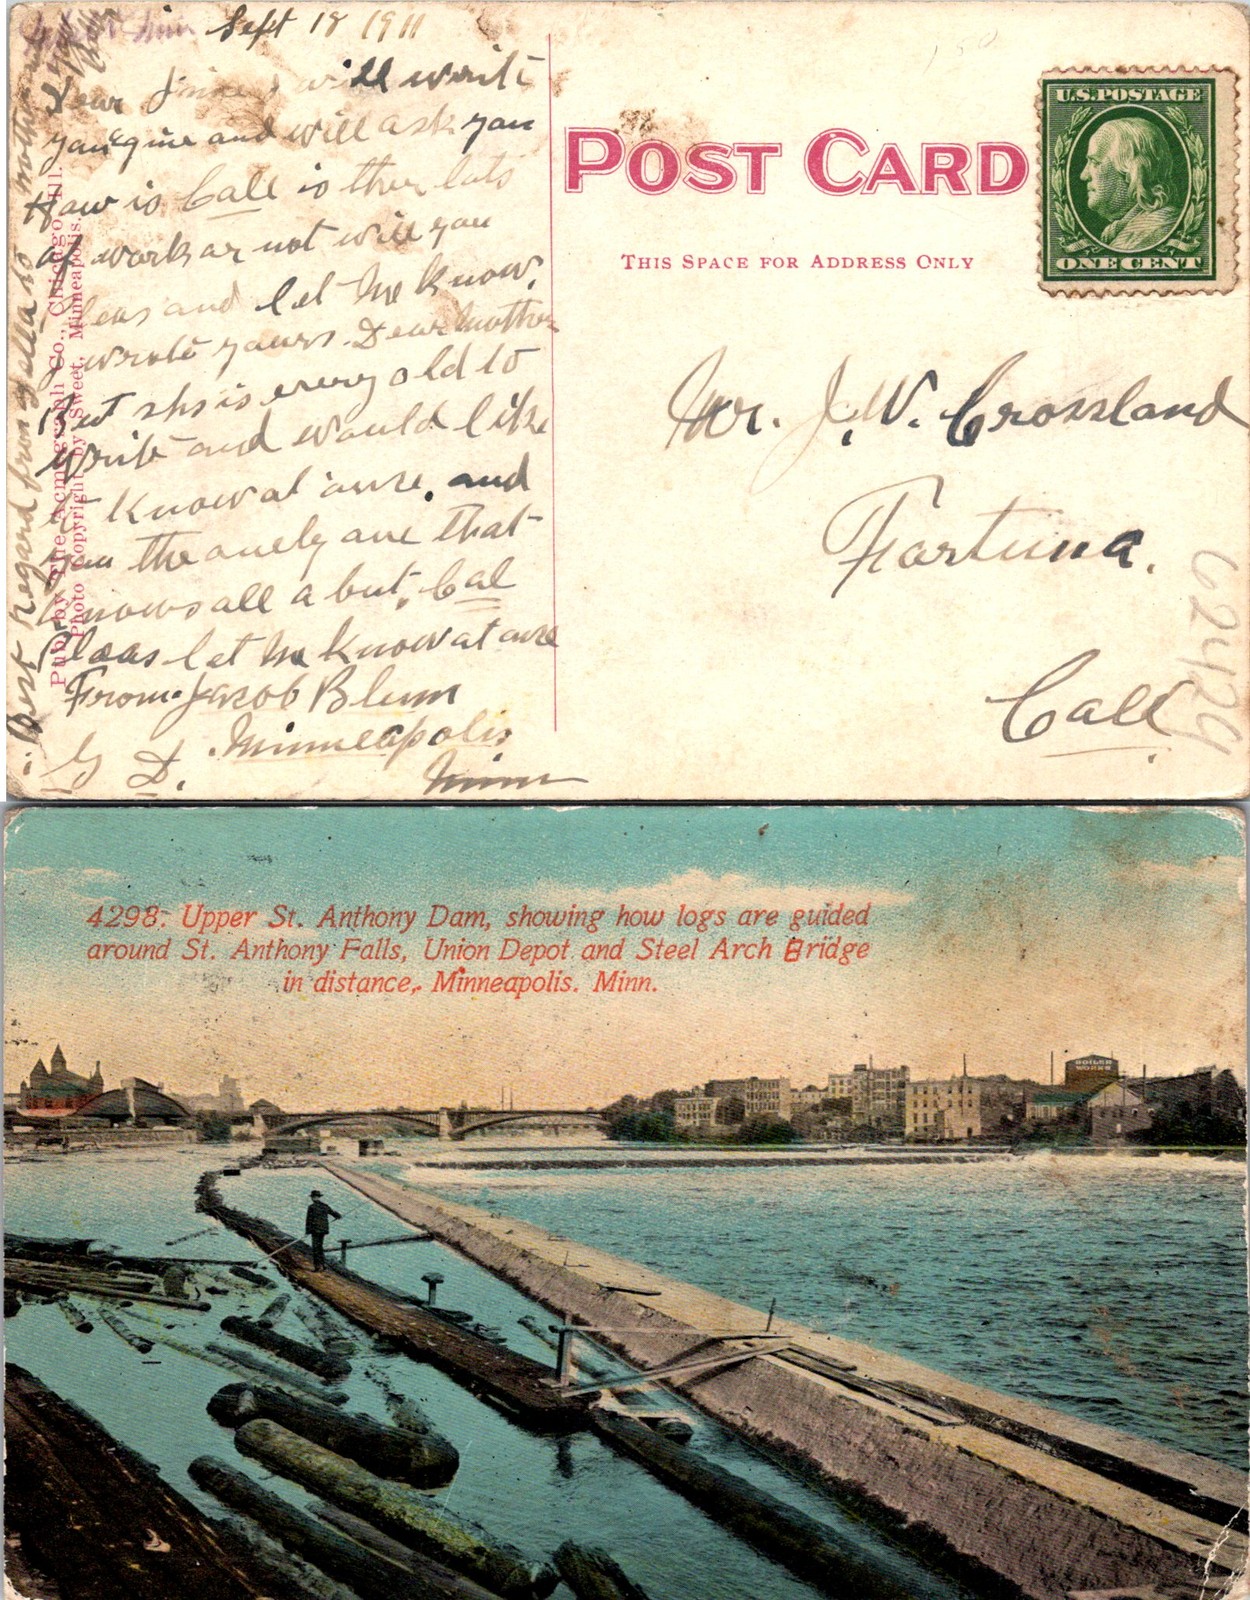 Sept 18 1911
Dear will write
you and will ask you
How is Call is ther lats
of work ar not will you
Pleas and let me know,
wrote yours. Dear mother
But shs is every old to
write and would like
to know at anse. and
you the onely one that
knows all a but, Cal
Pleas let me know at anse
From. Jacob Blum
G D. Minneapolis
Minn
Best Regard from
Pub. by The Acmegraph Co., Chicago, Ill.
Photo Copyright by Sweet, Minneapolis.
POST CARD
THIS SPACE FOR ADDRESS ONLY
U.S. POSTAGE
ONE CENT
Mr. J. W. Crossland
Fortuna.
Call.
62429
4298. Upper St. Anthony Dam, showing how logs are guided
around St. Anthony Falls, Union Depot and Steel Arch Bridge
in distance, Minneapolis. Minn.
BOILER
WORKS